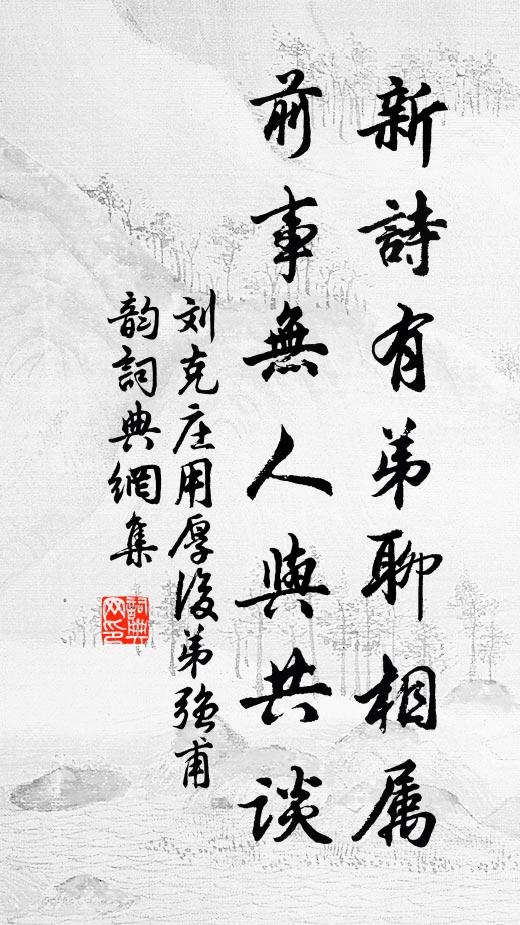 新詩有弟聊相属
前事無人與共談
刘克庄用厚後弟强甫
韵詞典網集
詞典网印